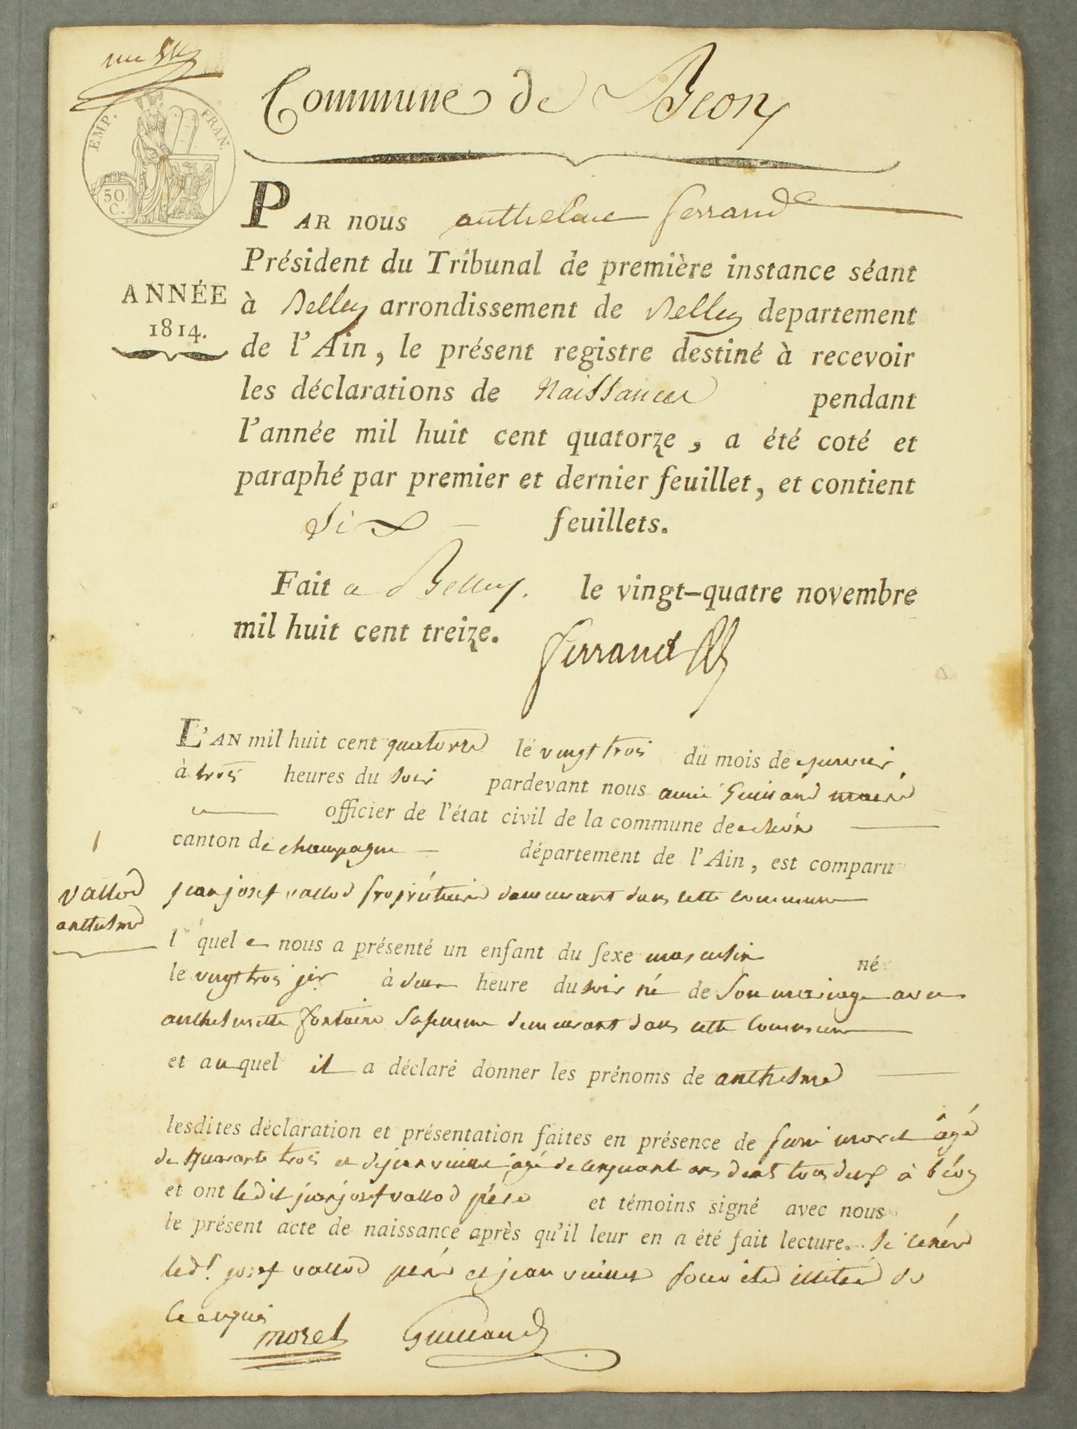 Commune de Beon
EMP. FRAN.
50 C.
PAR nous anthelme ferrand
Président du Tribunal de première instance séant
ANNÉE
1814.
à Belley arrondissement de Belley departement
de l'Ain, le présent registre destiné à recevoir
les déclarations de Naissances pendant
l'année mil huit cent quatorze, a été coté et
paraphé par premier et dernier feuillet, et contient
Six feuillets.
Fait a Belley. le vingt-quatre novembre
mil huit cent treize.
ferrand
L'AN mil huit cent quatorze le vingt trois du mois de janvier,
à trois heures du soir pardevant nous aimé Guilland maire
officier de l'état civil de la commune de béon
canton de champagne département de l'Ain, est comparu
1
vallod
anthelme
jean josef vallod propriétaire demeurant dans cette commune
lequel nous a présenté un enfant du sexe masculin né
le vingt trois jer à deux heure du soir né de Son mariage avec
anthelmette fontaine Sa femme demeurant dans cette Commune
et auquel il a déclaré donner les prénoms de anthelme
lesdites déclaration et présentation faites en présence de morel âgé
de quarante trois et de jean vuillet agé de cinquant ans tous deux à béon
et ont ledit jean josef vallod père et témoins signé avec nous
le présent acte de naissance après qu'il leur en a été fait lecture.
ledt josef vallod père et jean vuillet pour être illiteré de
ce enquis
morel Guilland